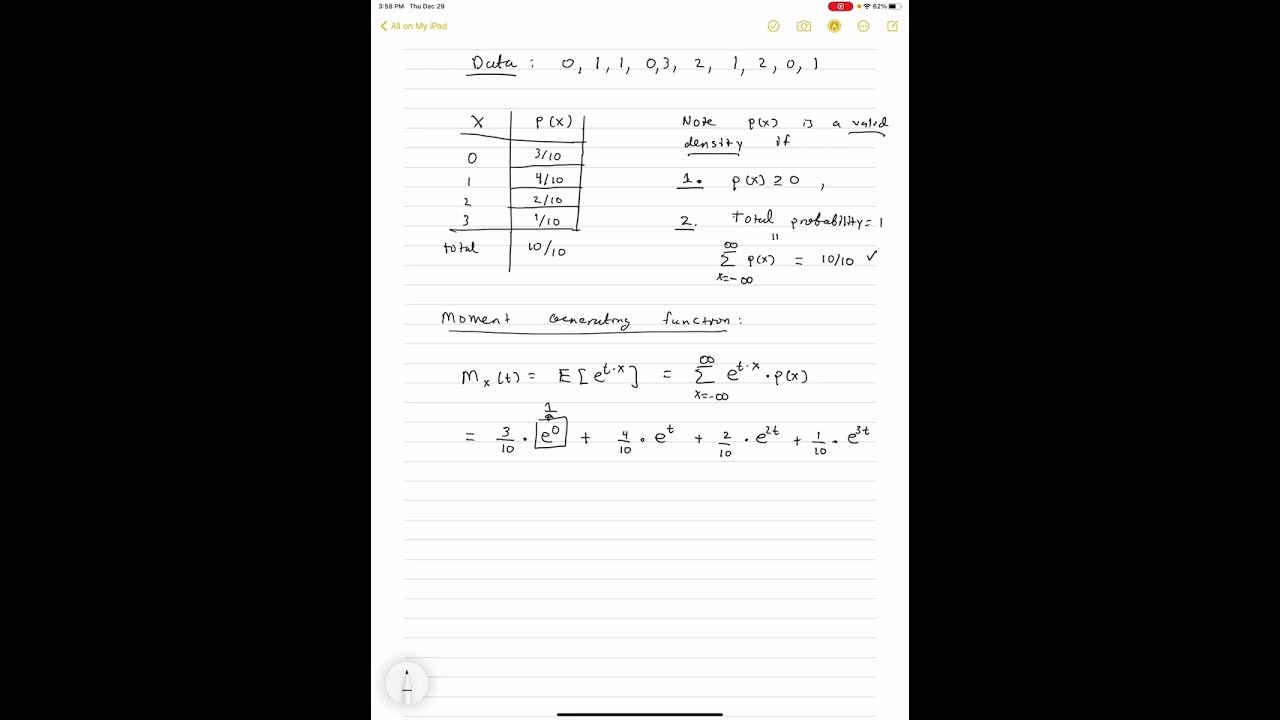 3:58 PM Thu Dec 29 62%
All on My iPad
Data : 0, 1, 1, 0, 3, 2, 1, 2, 0, 1
X p(x)
0 3/10
1 4/10
2 2/10
3 1/10
total 10/10
Note p(x) is a valid
density if
1. p(x) ≥ 0 ,
2. Total probability = 1
"
∞
∑ p(x) = 10/10 ✓
x=-∞
Moment Generating function :
Mₓ(t) = E[e^{t·x}] = ∑_{x=-∞}^{∞} e^{t·x} · p(x)
1
= 3/10 · e^0 + 4/10 · e^t + 2/10 · e^{2t} + 1/10 · e^{3t}